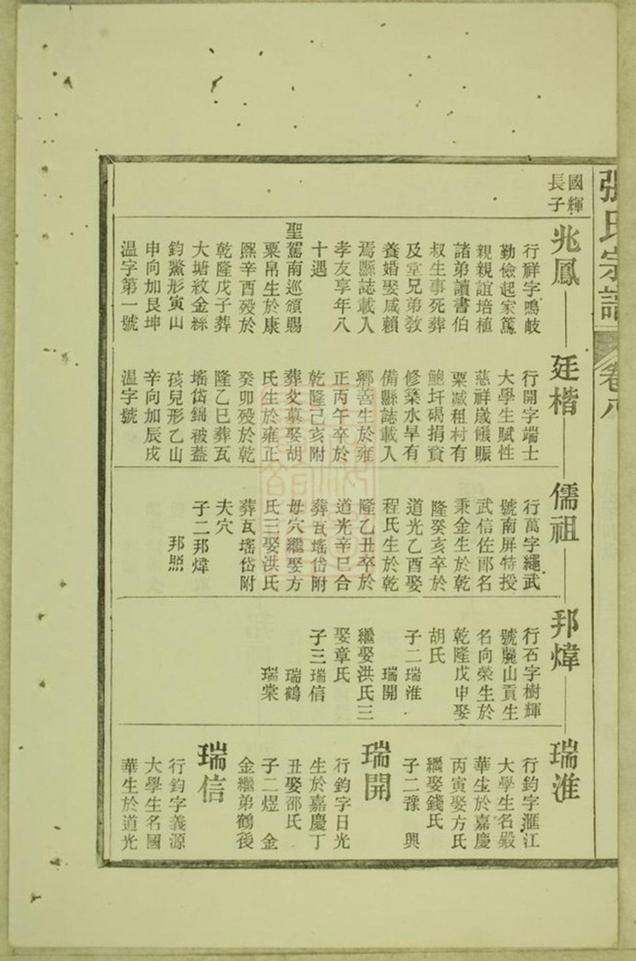 張氏宗譜
卷八
國輝
長子
兆鳳
行祥字鳴岐
勤儉起家篤
親親誼培植
諸弟讀書伯
叔生事死葬
及堂兄弟教
養婚娶咸賴
焉縣誌載入
孝友享年八
十遇
聖駕南巡頒賜
粟帛生於康
熙辛酉歿於
乾隆戊子葬
大塘紋金絲
鈞鱉形寅山
申向加艮坤
溫字第一號
廷楷
行開字端士
大學生賦性
慈祥歲饑賑
粟减租村有
鮑圩碣捐資
修築水旱有
備縣誌載入
鄉善生於雍
正丙午卒於
乾隆己亥附
葬父墓娶胡
氏生於雍正
癸卯殁於乾
隆乙巳葬瓦
瑤岱錦被蓋
孩兒形乙山
辛向加辰戌
溫字號
儒祖
行萬字繩武
號南屏特授
武信佐郎名
秉金生於乾
隆癸亥卒於
道光乙酉娶
程氏生於乾
隆乙丑卒於
道光辛巳合
葬瓦瑤岱附
母穴繼娶方
氏三娶洪氏
葬瓦瑤岱附
夫穴
子二邦煒
邦照
邦煒
行石字樹輝
號麗山貢生
名向榮生於
乾隆戊申娶
胡氏
子二瑞淮
瑞開
繼娶洪氏三
娶章氏
子三瑞信
瑞鶴
瑞棠
瑞淮
行鈞字滙江
大學生名嚴
華生於嘉慶
丙寅娶方氏
繼娶錢氏
子二豫 興
瑞開
行鈞字日光
生於嘉慶丁
丑娶邵氏
子二煜 金
金繼弟鶴後
瑞信
行鈞字義源
大學生名國
華生於道光